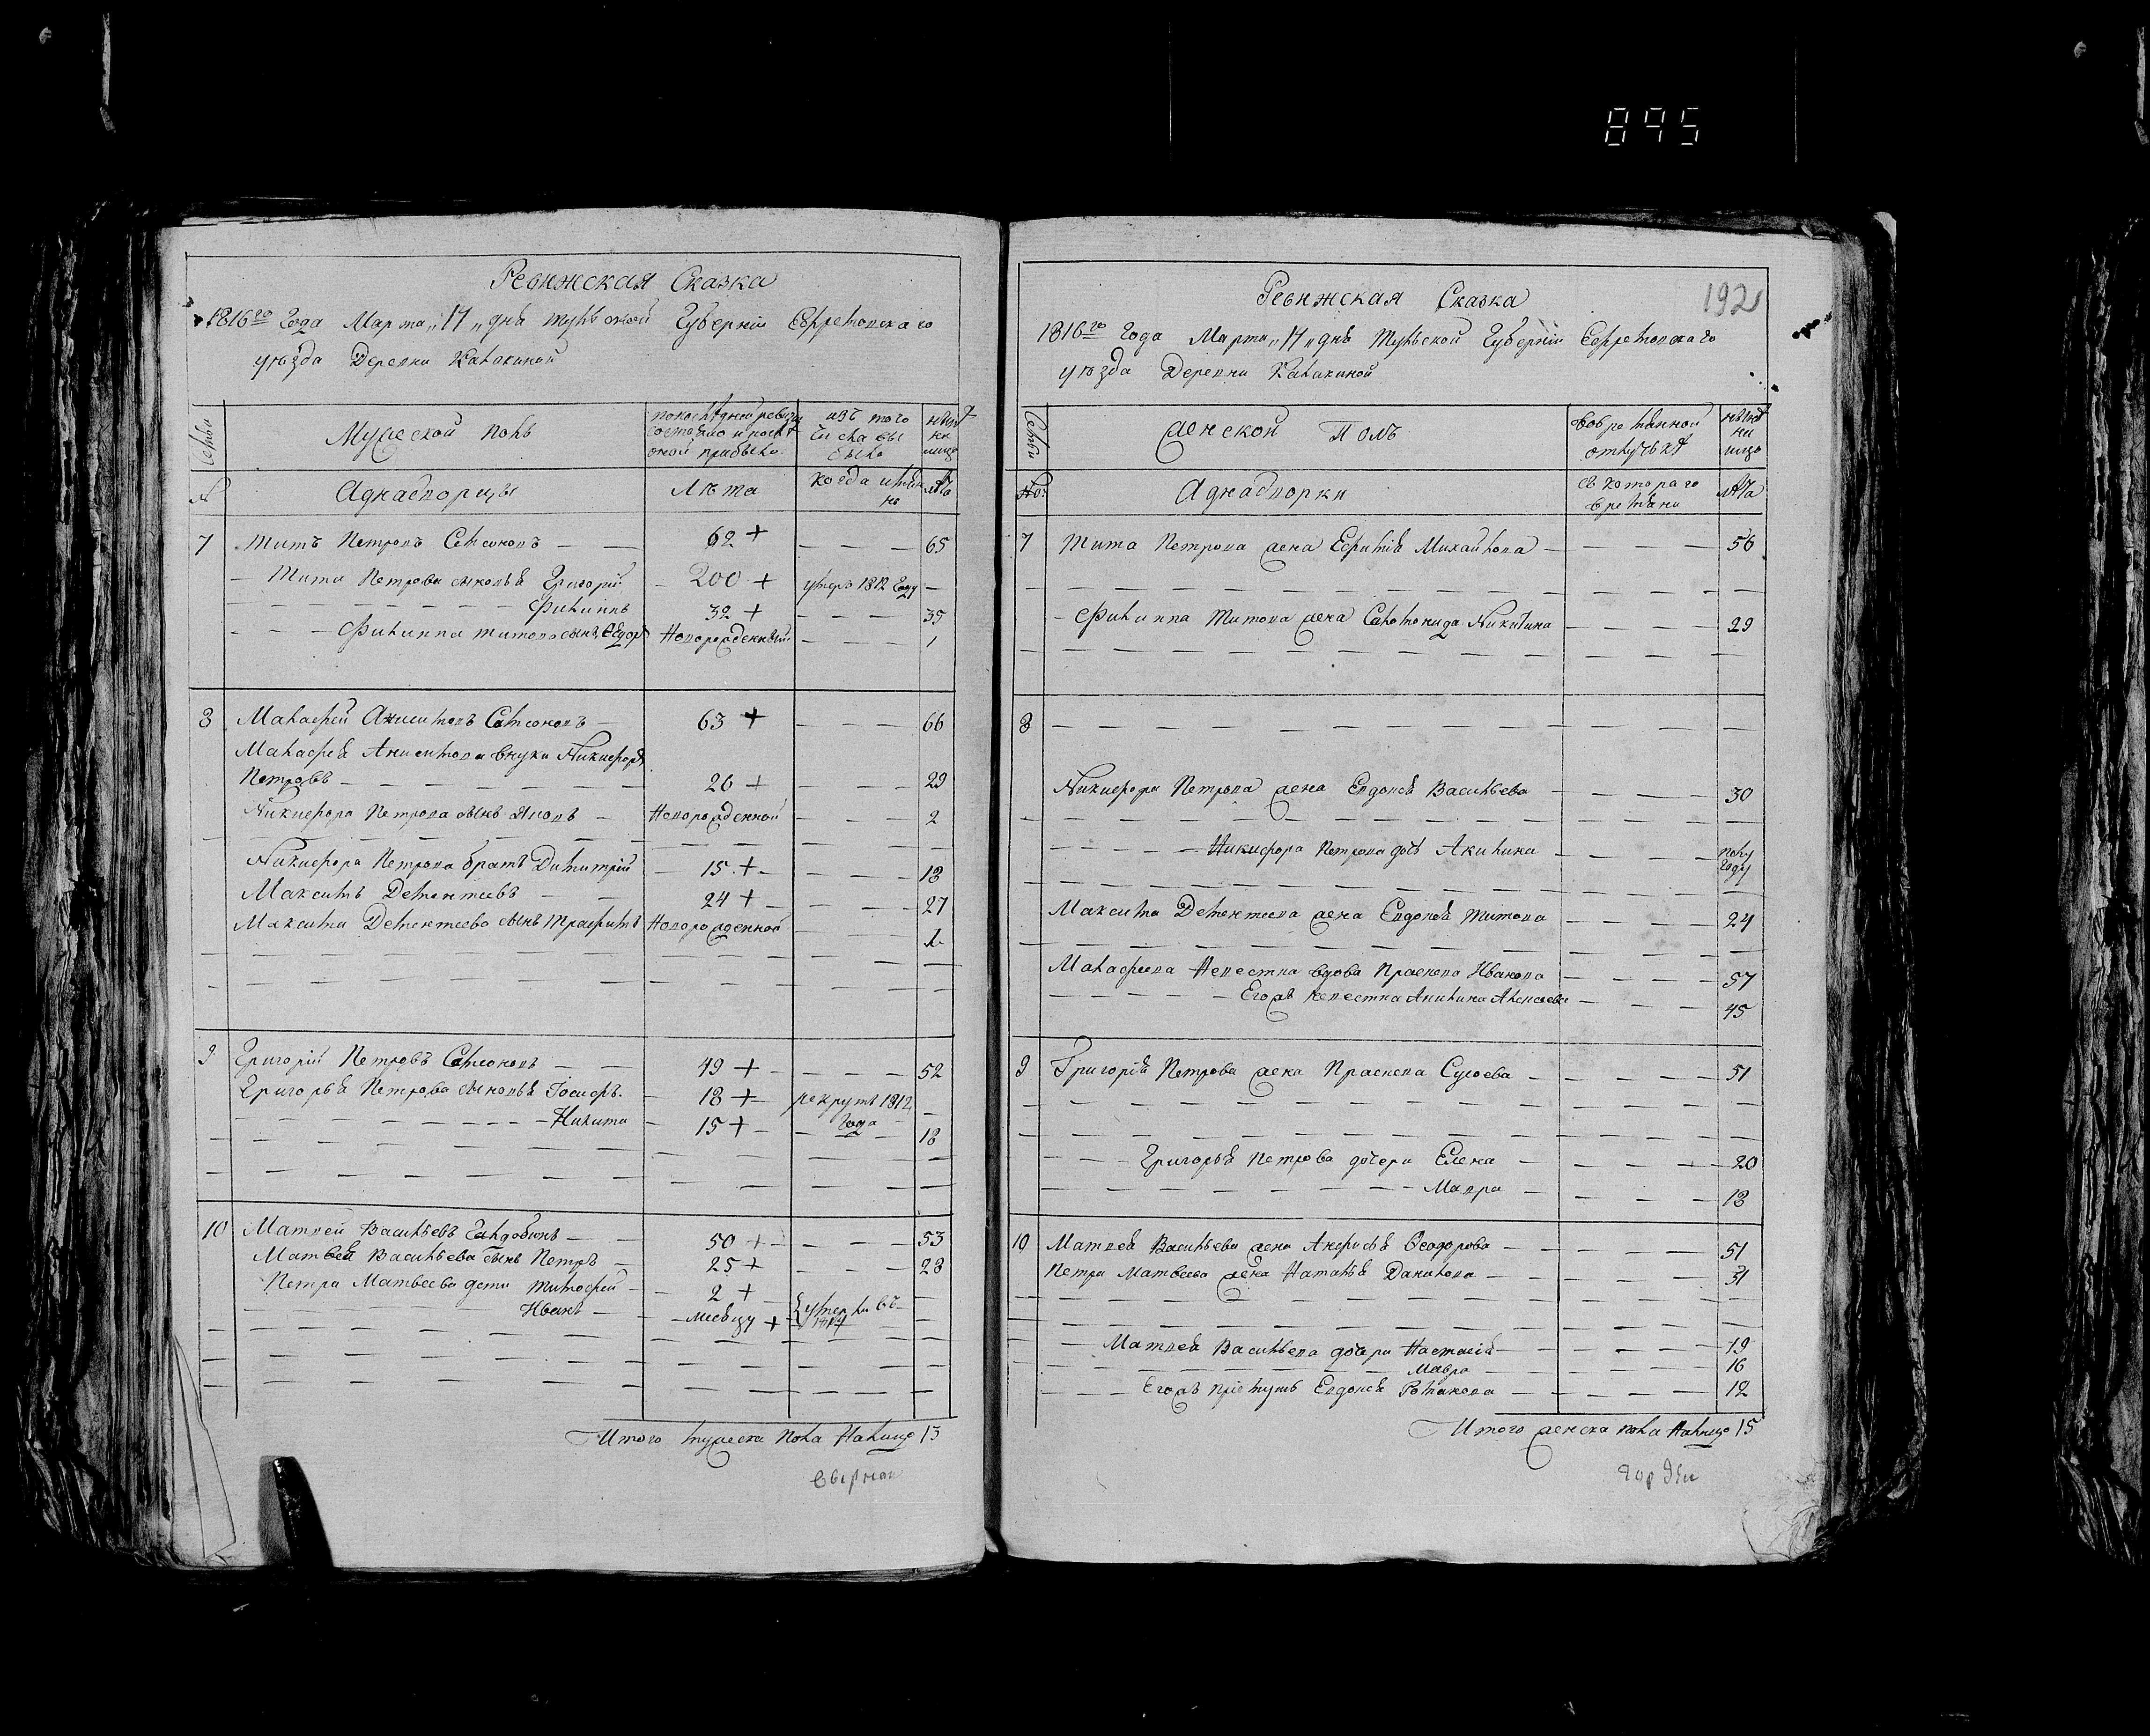 895
Ревижская Сказка
1816го Года Марта „17„ дня Тульской Губернии Ефремовскаго
уезда Деревни Калакиной
Семьи
Мужеской полъ
по последней ревизіи
состояло и после
оной прибыло
изъ того
числа вы
было
ныне
на
лицо
№
Аднадворцы
Лѣта
когда имян
но
лѣта
7 Титъ Петровъ Самсоновъ — 62 + — 65
Тита Петрова сыновья Григорій — 200 + умеръ 1812 Году —
Филиппъ 32 + — 35
Филиппа Титова сынъ Ѳедоръ Новорожденный — 1
8 Малафей Анисимовъ Самсоновъ — 63 + — 66
Малафея Анисимова внуки Никифоръ
Петровъ — 26 + — 29
Никифора Петрова сынъ Яковъ — Новорожденной — 2
Никифора Петрова братъ Димитрій — 15 + — 18
Максимъ Дементеевъ — 24 + — 27
Максима Дементеева сынъ Трафимъ Новорожденной — 1
9 Григорій Петровъ Самсоновъ — 49 + — 52
Григорья Петрова сыновья Іосифъ — 18 + — рекрутъ 1812 —
Года
Никита — 15 + — 18
10 Матвей Васильевъ — 50 + — 53
Матвея Васильева сынъ Петръ — 25 + — 28
Петра Матвеева дети Тимофей — 2 + —
Иванъ — месяцу + умерли въ —
Итого мужеска пола Налицо 13
192
Ревижская Сказка
1816го Года Марта „17„ дня Тульской Губернии Ефремовскаго
уезда Деревни Калакиной
Семьи
Женской Полъ
Вовременной
отлучке
ныне
на
лицо
№
Аднадворки
съ котораго
времяни
лѣта
7 Тита Петрова жена Ефимія Михайлова — 56
Филиппа Титова жена Саломонида Никитина — 29
8
Никифора Петрова жена Евдокея Васильева — 30
Никифора Петрова дочь Акилина — полу
году
Максима Дементеева жена Евдокея Титова — 24
Малафеева Невестка вдова Прасковья Иванова — 57
Его же невестка Акилина Алексеева — 45
9 Григорія Петрова жена Прасковья Сысоева — 51
Григорья Петрова дочери Елена — 20
Мавра — 18
10 Матвея Васильева жена Анфисья Ѳеодорова — 51
Петра Матвеева жена Наталья Данилова — 31
Матвея Васильева дочери Настасія — 19
Мавра 16
Его жъ Евдокея Романова — 12
Итого женска пола Налицо 15